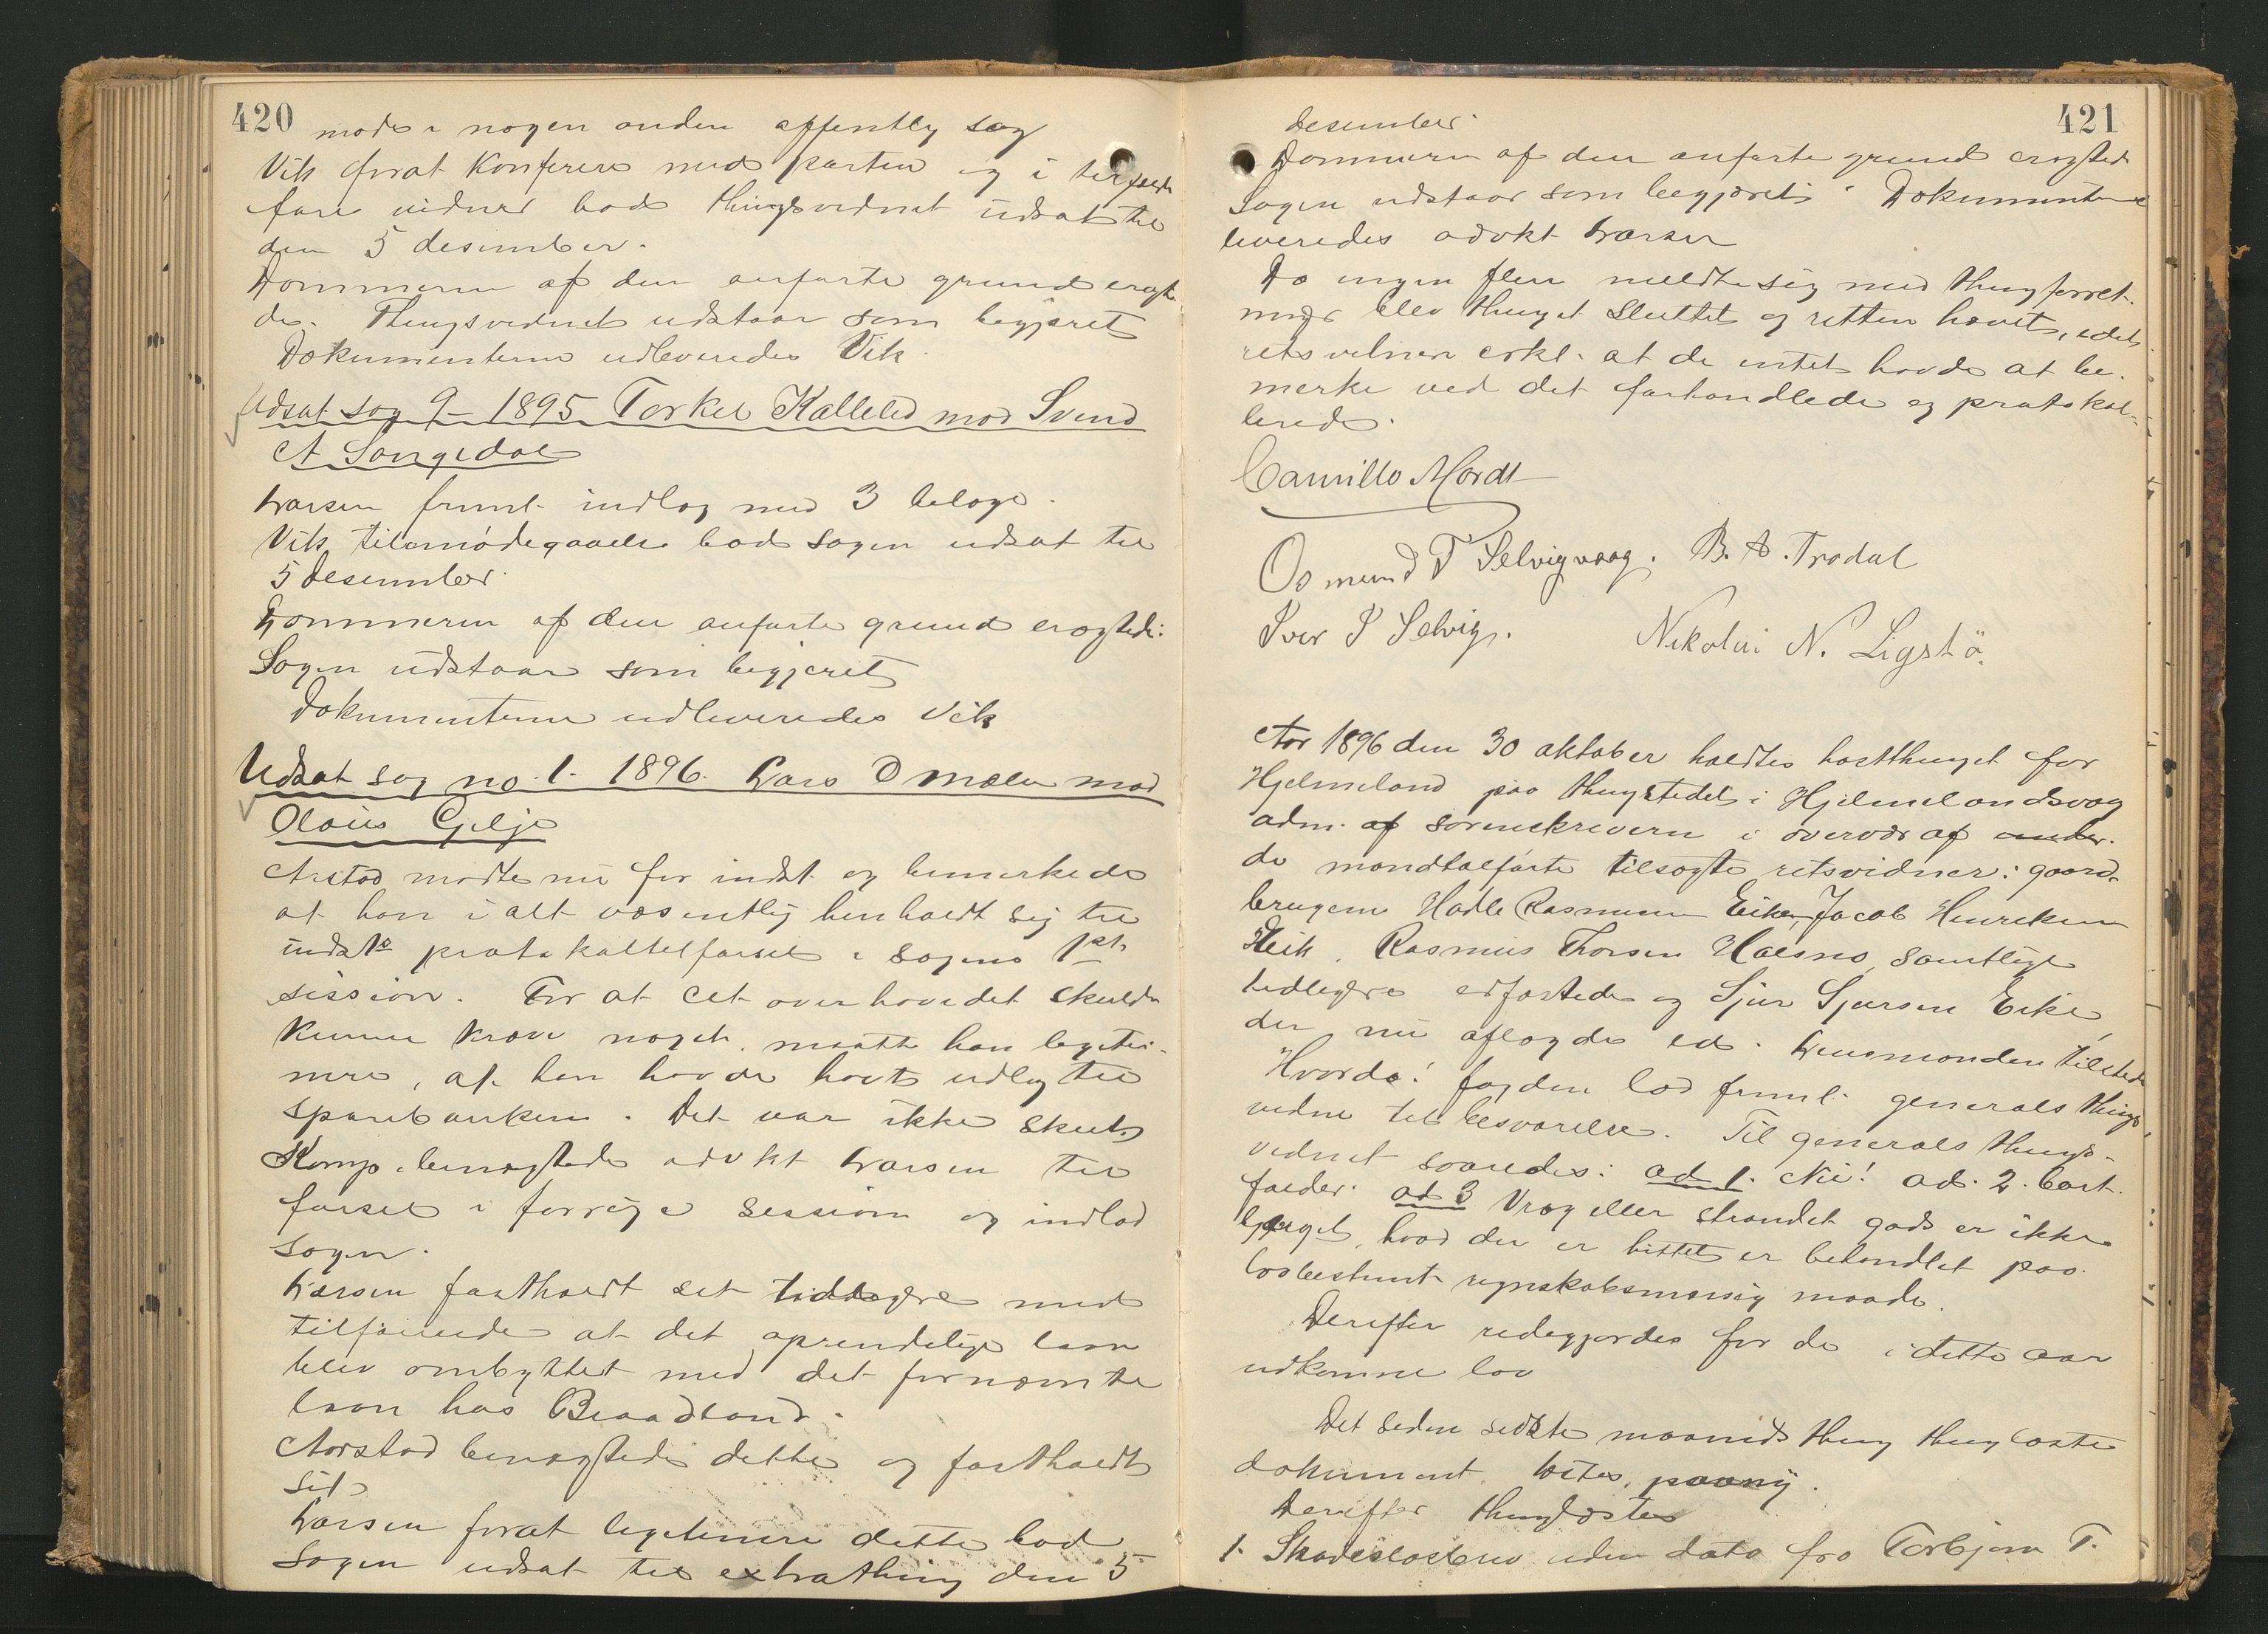 420
møde i nogen anden offentlig sag
Vik forat konferere med parten og i tilfælde
føre vidner bad thingsvidnet udsat til
den 5 desember.
Dommeren af den anførte grund eragte-
de: Thingsvidnet udstaar som begjæret
Dokumenterne udleveredes Vik.
Udsat sag 9 - 1895 Torkel Kalleli mod Svend
A Songedal
Larsen freml. indlæg med 3 bilage.
Vik til imødegaaelse bad sagen udsat til
5 desember.
Dommeren af den anførte grund eragtede:
Sagen udstaar som begjæret
Dokumenterne udleveredes Vik
Udsat sag no. 1. 1896. Lars O Mælen mod
Olaus Gilje
Arstad mødte nu for indst. og bemerkede
at han i alt væsentlig henholdt sig til
indsts protokoltilførsel i sagens 1st
session. For at cit. overhovedet skulde
kunne kræve noget, maatte han legiti-
mere, at han havde havt udlæg til
sparebanken. Det var ikke skeet.
Komp. benægtede advkt Larsen til
førsel i forrige session og indlod
sagen.
Larsen fastholdt sit tidligere med
tilføiende at det oprindelige laan
blev ombyttet med det fornævnte
laan hos Braadland.
Aarstad benægtede dette og fastholdt
sit
Larsen forat legitimere dette bad
sagen udsat til extrathing den 5
421
desember.
Dommeren af den anførte grund eragted
Sagen udstaar som begjæret. Dokumenterne
leveredes advkt Larsen
Da ingen flere meldte sig med thingforret-
ninger blev thinget sluttet og retten hævet, idet
retsvidnene erkl. at de intet havde at be-
merke ved det forhandlede og protokol-
lerede.
Camillo Mordt
Osmund T Selvigvaag. B. A. Trodal
Iver I Selvig. Nikolai N. Ligstö.
Aar 1896 den 30 oktober holdtes høstthinget for
Hjelmeland paa thingstedet i Hjelmelandsvaag
adm. af sorenskriveren i overvær af under-
de mandtalførte tilsagte retsvidner: gaard-
brugerne Hadle Rasmusen Eike, Jacob Henriksen
Steik, Rasmus Thorsen Halsne, samtlige
tidligere edfæstede og Sjur Sjursen Eike,
der nu aflagde ed. Lensmanden tilstede
Hvorda: fogden lod freml. generals things-
vidne til besvarelse. Til generals things-
vidnet svaredes: ad 1. Nei! ad. 2. bort-
falder. ad 3 Vrag eller strandet gods er ikke
bjerget, hvad der er hittet er behandlet paa
lovbestemt regnskabsmæssig maade.
Derefter redegjordes for de i dette aar
udkomne lov
Det siden sidste maaneds thing thinglæste
dokument læstes paany.
Derefter thinglæstes
1. Skadesløsbrev uden dato fra Torbjørn T.